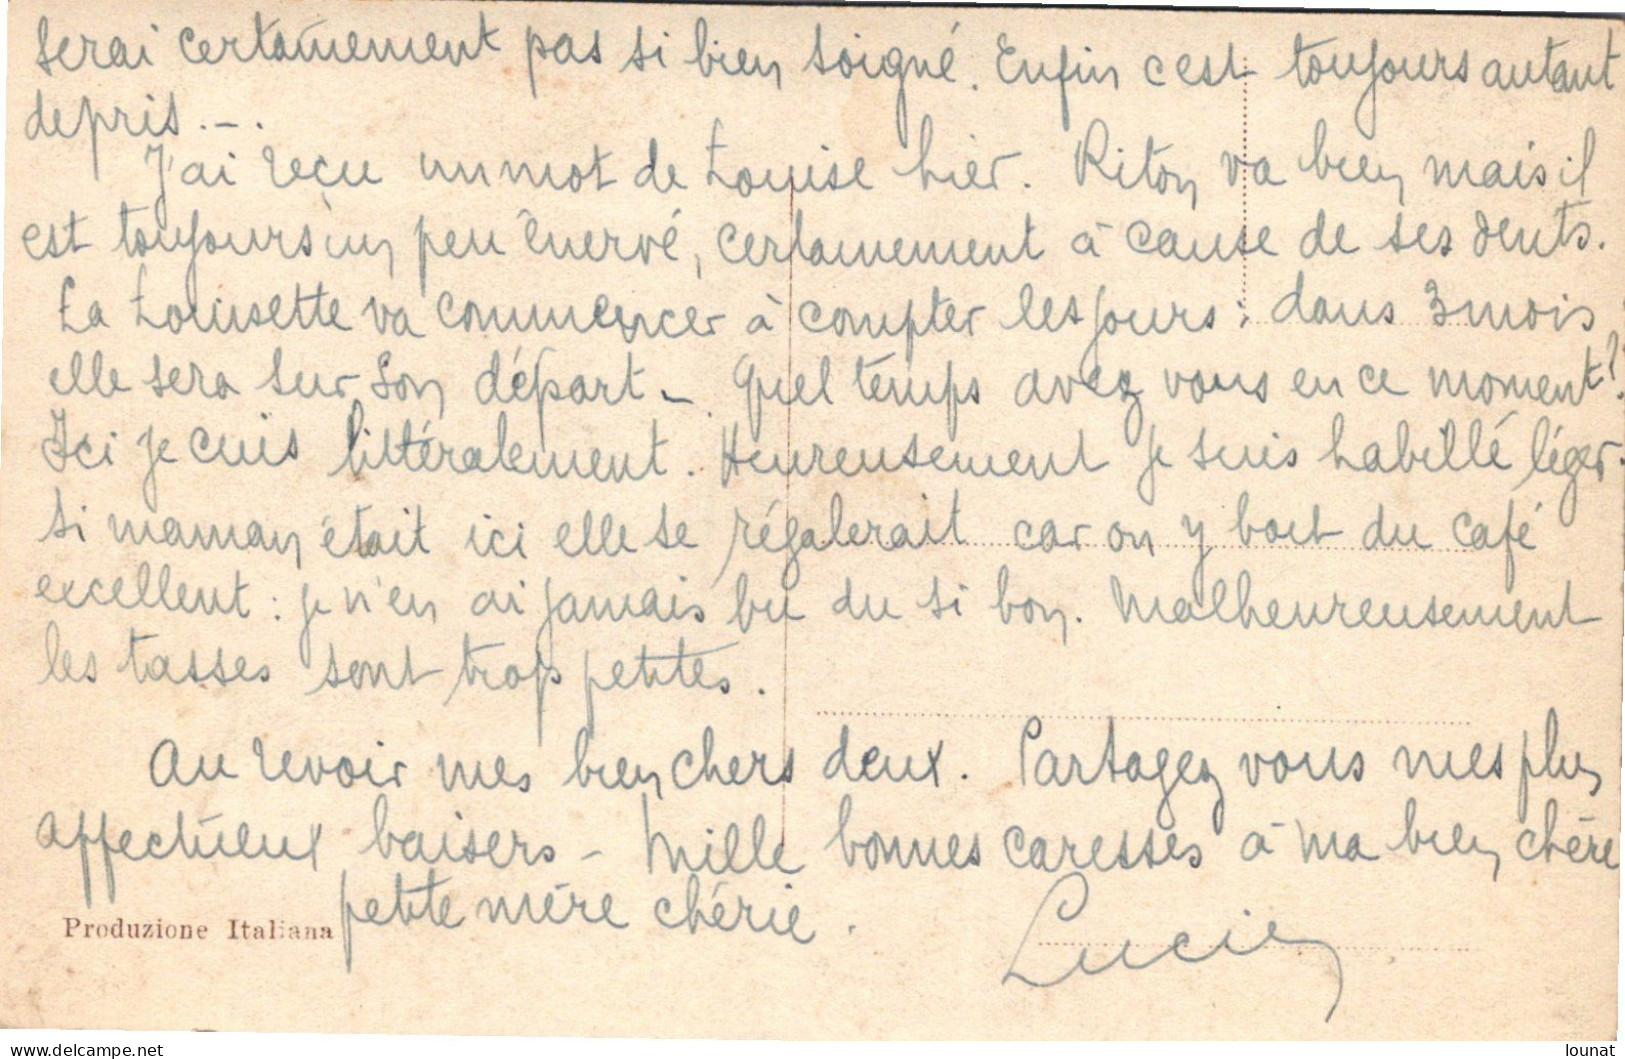 serai certainement pas si bien soigné. Enfin c'est toujours autant
de pris.-.
J'ai reçu un mot de Louise hier. Riton va bien mais il
est toujours un peu énervé, certainement à cause de ses dents.
La Louisette va commencer à compter les jours : dans 3 mois
elle sera sur son départ -. Quel temps avez vous en ce moment ?
Ici je cuis littéralement. Heureusement je suis habillé léger.
Si maman était ici elle se régalerait car on y boit du café
excellent : je n'en ai jamais bu du si bon. Malheureusement
les tasses sont trop petites.
Au revoir mes bien chers deux. Partagez vous mes plus
affectueux baisers - Mille bonnes caresses à ma bien chère
petite mère chérie.
Lucien
Produzione Italiana
www.delcampe.net
lounat